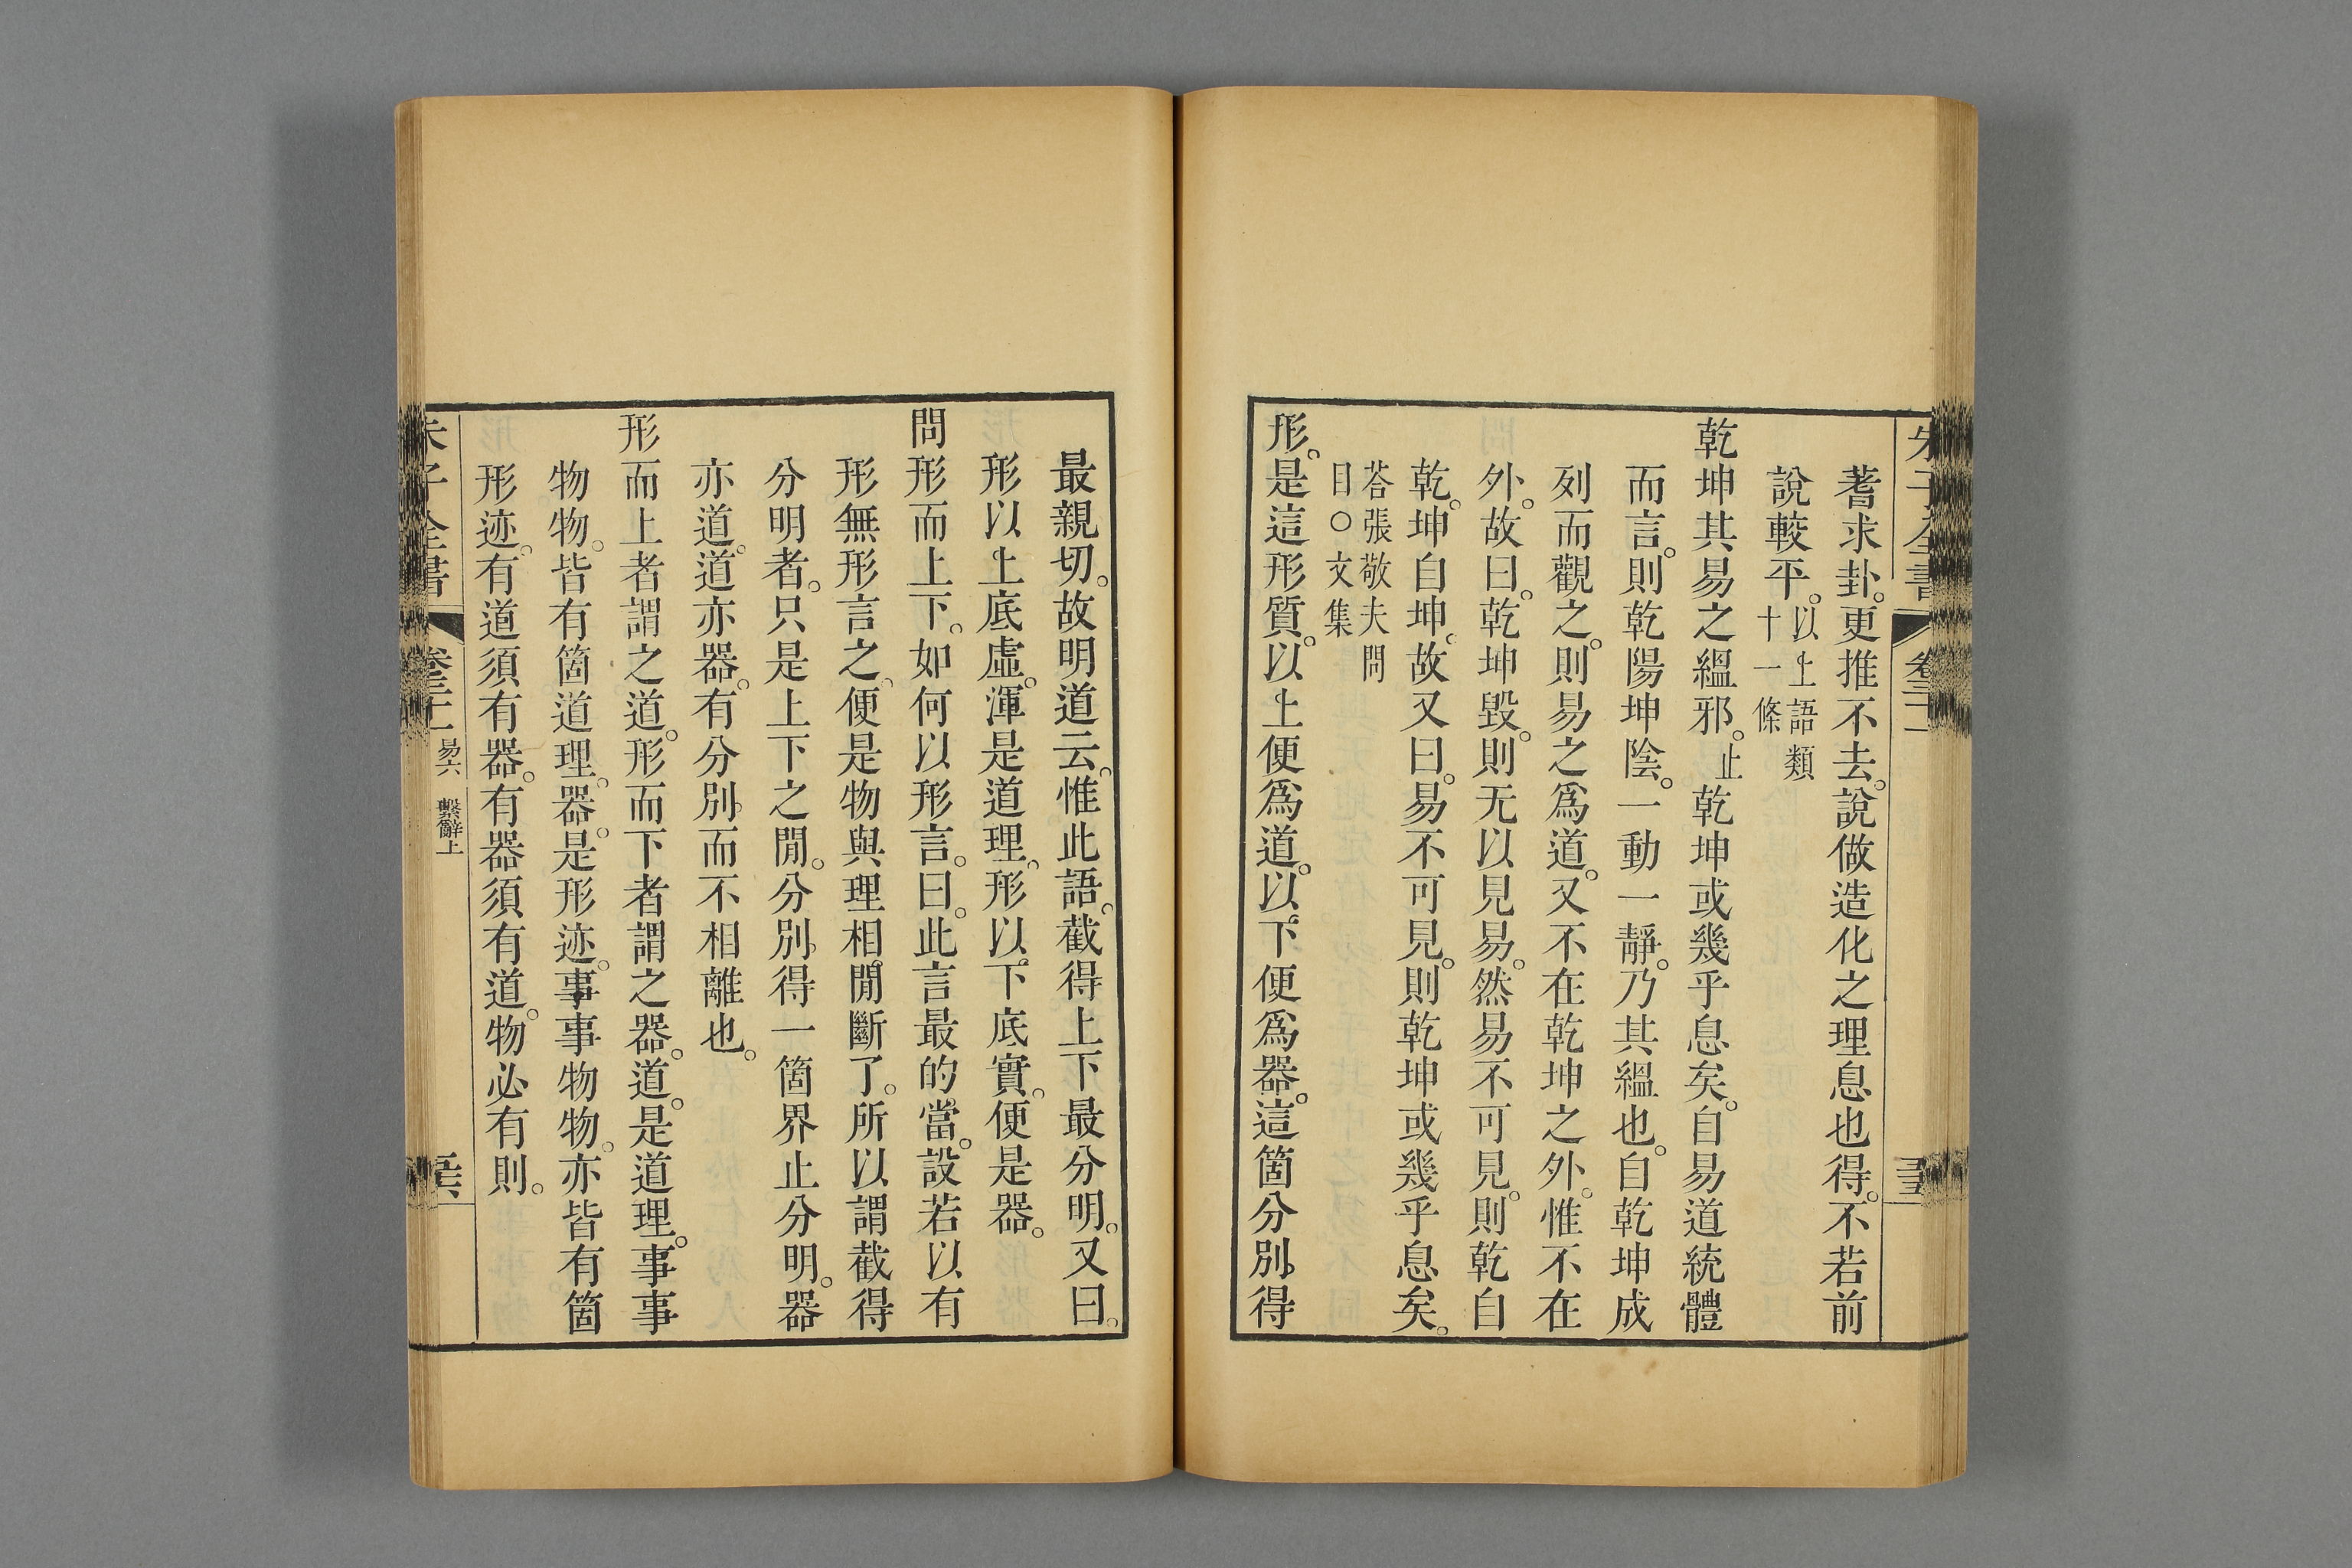 蓍求卦。更推不去。說做造化之理息也得。不若前
說較平。以上語類
十一條
乾坤其易之縕邪。止乾坤或幾乎息矣。自易道統體
而言。則乾陽坤陰。一動一靜。乃其縕也。自乾坤成
列而觀之。則易之爲道。又不在乾坤之外。惟不在
外。故曰。乾坤毀。則无以見易。然易不可見。則乾自
乾。坤自坤。故又曰。易不可見。則乾坤或幾乎息矣。
荅張敬夫問
目○文集
形。是這形質。以上便爲道。以下便爲器。這箇分別得
最親切。故明道云。惟此語。截得上下最分明。又曰。
形以上底虛。渾是道理。形以下底實。便是器。
問形而上下。如何以形言。曰。此言最的當。設若以有
形無形言之。便是物與理相閒斷了。所以謂截得
分明者。只是上下之閒。分別得一箇界止分明。器
亦道。道亦器。有分別而不相離也。
形而上者謂之道。形而下者謂之器。道。是道理。事事
物物。皆有箇道理。器。是形迹。事事物物。亦皆有箇
形迹。有道須有器。有器須有道。物必有則。
朱子全書
易六 繫辭上